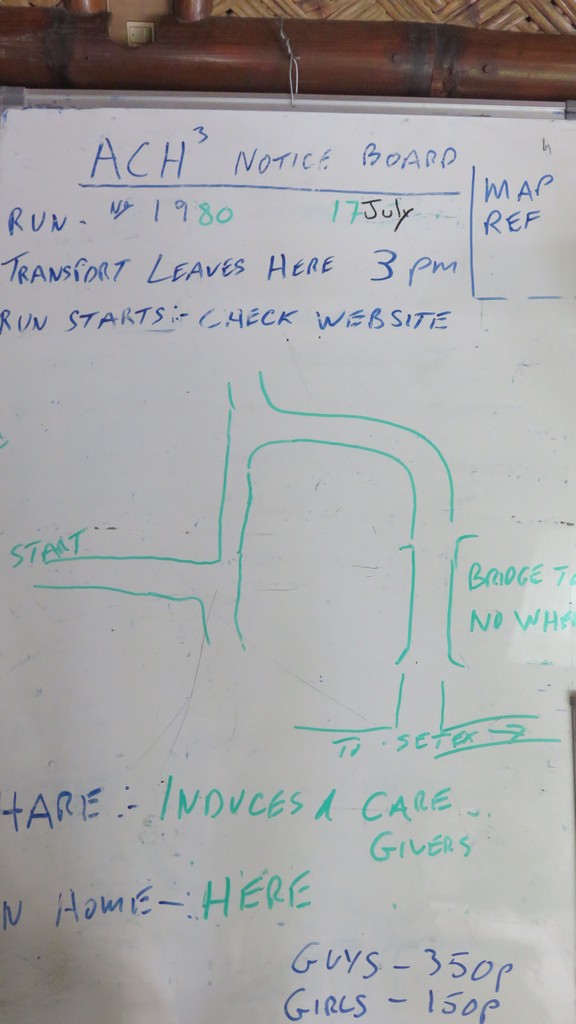 ACH³ NOTICE BOARD
RUN - Nº 1980 17 July
MAP
REF
TRANSPORT LEAVES HERE 3 pm
RUN STARTS:- CHECK WEBSITE
START
BRIDGE TO
NO WHE
TO SETEX →
HARE:- INDUCES & CARE
GIVERS
N HOME-: HERE
GUYS - 350p
GIRLS - 150p